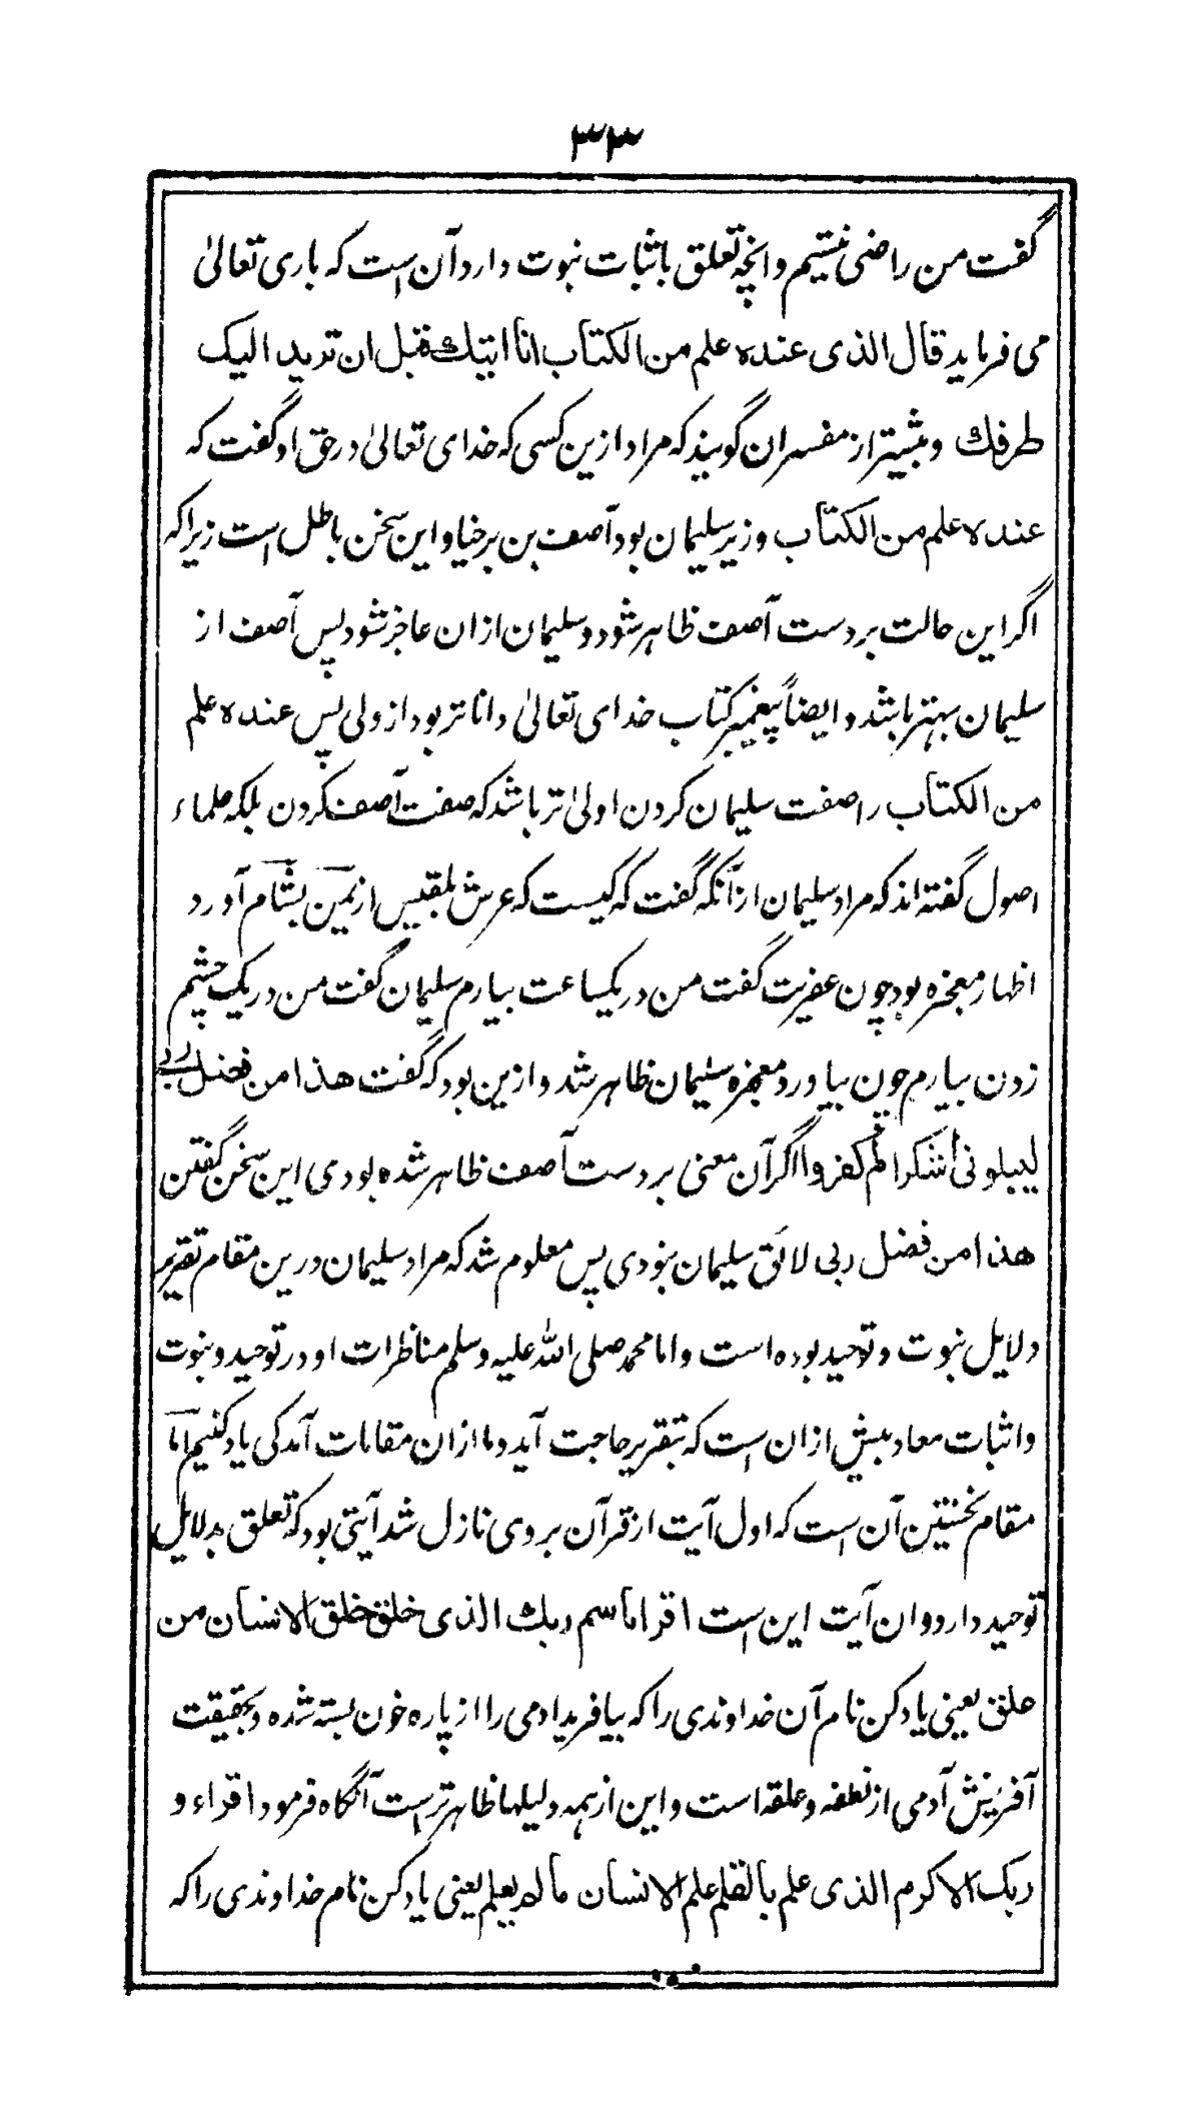 ۳۳
گفت من راضی نیستیم وانچه تعلق باثبات نبوت دارد آن است که باری تعالیٰ
می فرماید قال الذی عنده علم من الکتاب انا اتیك قبل ان ترید الیک
طرفك و بیشتر از مفسران گویند که مراد ازین کسی که خدای تعالیٰ در حق او گفت که
عنده علم من الکتاب وزیر سلیمان بود آصف بن برخیا و این سخن باطل است زیرا که
اگر این حالت بر دست آصف ظاهر شود و سلیمان ازان عاجز شود پس آصف از
سلیمان بهتر باشد و ایضاً پیغمبر کتاب خدای تعالیٰ داناتر بود از ولی پس عنده علم
من الکتاب را صفت سلیمان کردن اولیٰ تر باشد که صفت آصف کردن بلکه علماء
اصول گفته اند که مراد سلیمان ازآنکه گفت که کیست که عرش بلقیس از یمن بشام آورد
اظهار معجزه بود چون عفریت گفت من در یکساعت بیارم سلیمان گفت من در یک چشم
زدن بیارم چون بیاورد معجزه سلیمان ظاهر شد و ازین بود که گفت هذا من فضل ربی
لیبلونی أشکر ام کفروا اگر آن معنی بر دست آصف ظاهر شده بودی این سخن گفتن
هذا من فضل ربی لائق سلیمان نبودی پس معلوم شد که مراد سلیمان درین مقام تقریر
دلایل نبوت و توحید بوده است و اما محمد صلی الله علیه وسلم مناظرات او در توحید و نبوت
و اثبات معاد بیش ازان است که بتقریر حاجت آید و ما ازان مقامات آمدکی یاد کنیم اما
مقام نخستین آن است که اول آیت از قرآن بر وی نازل شد آیتی بود که تعلق بدلایل
توحید دارد و ان آیت این است اقرا باسم ربك الذی خلق خلق الانسان من
علق یعنی یاد کن نام آن خداوندی را که بیافرید ادمی را از پاره خون بسته شده و بحقیقت
آفرینش آدمی از نطفه و علقه است و این از همه دلیلها ظاهرتر است آنگاه فرمود اقراء و
ربک الاکرم الذی علم بالقلم علم الانسان مالم یعلم یعنی یاد کن نام خداوندی را که